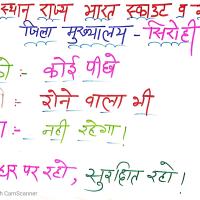 स्थान राज्य भारत स्काउट व
जिला मुख्यालय - सिरोही
को :- कोई पीछे
:- रोने वाला भी
:- नही रहेगा।
पर रहो, सुरक्षित रहो।
CamScanner